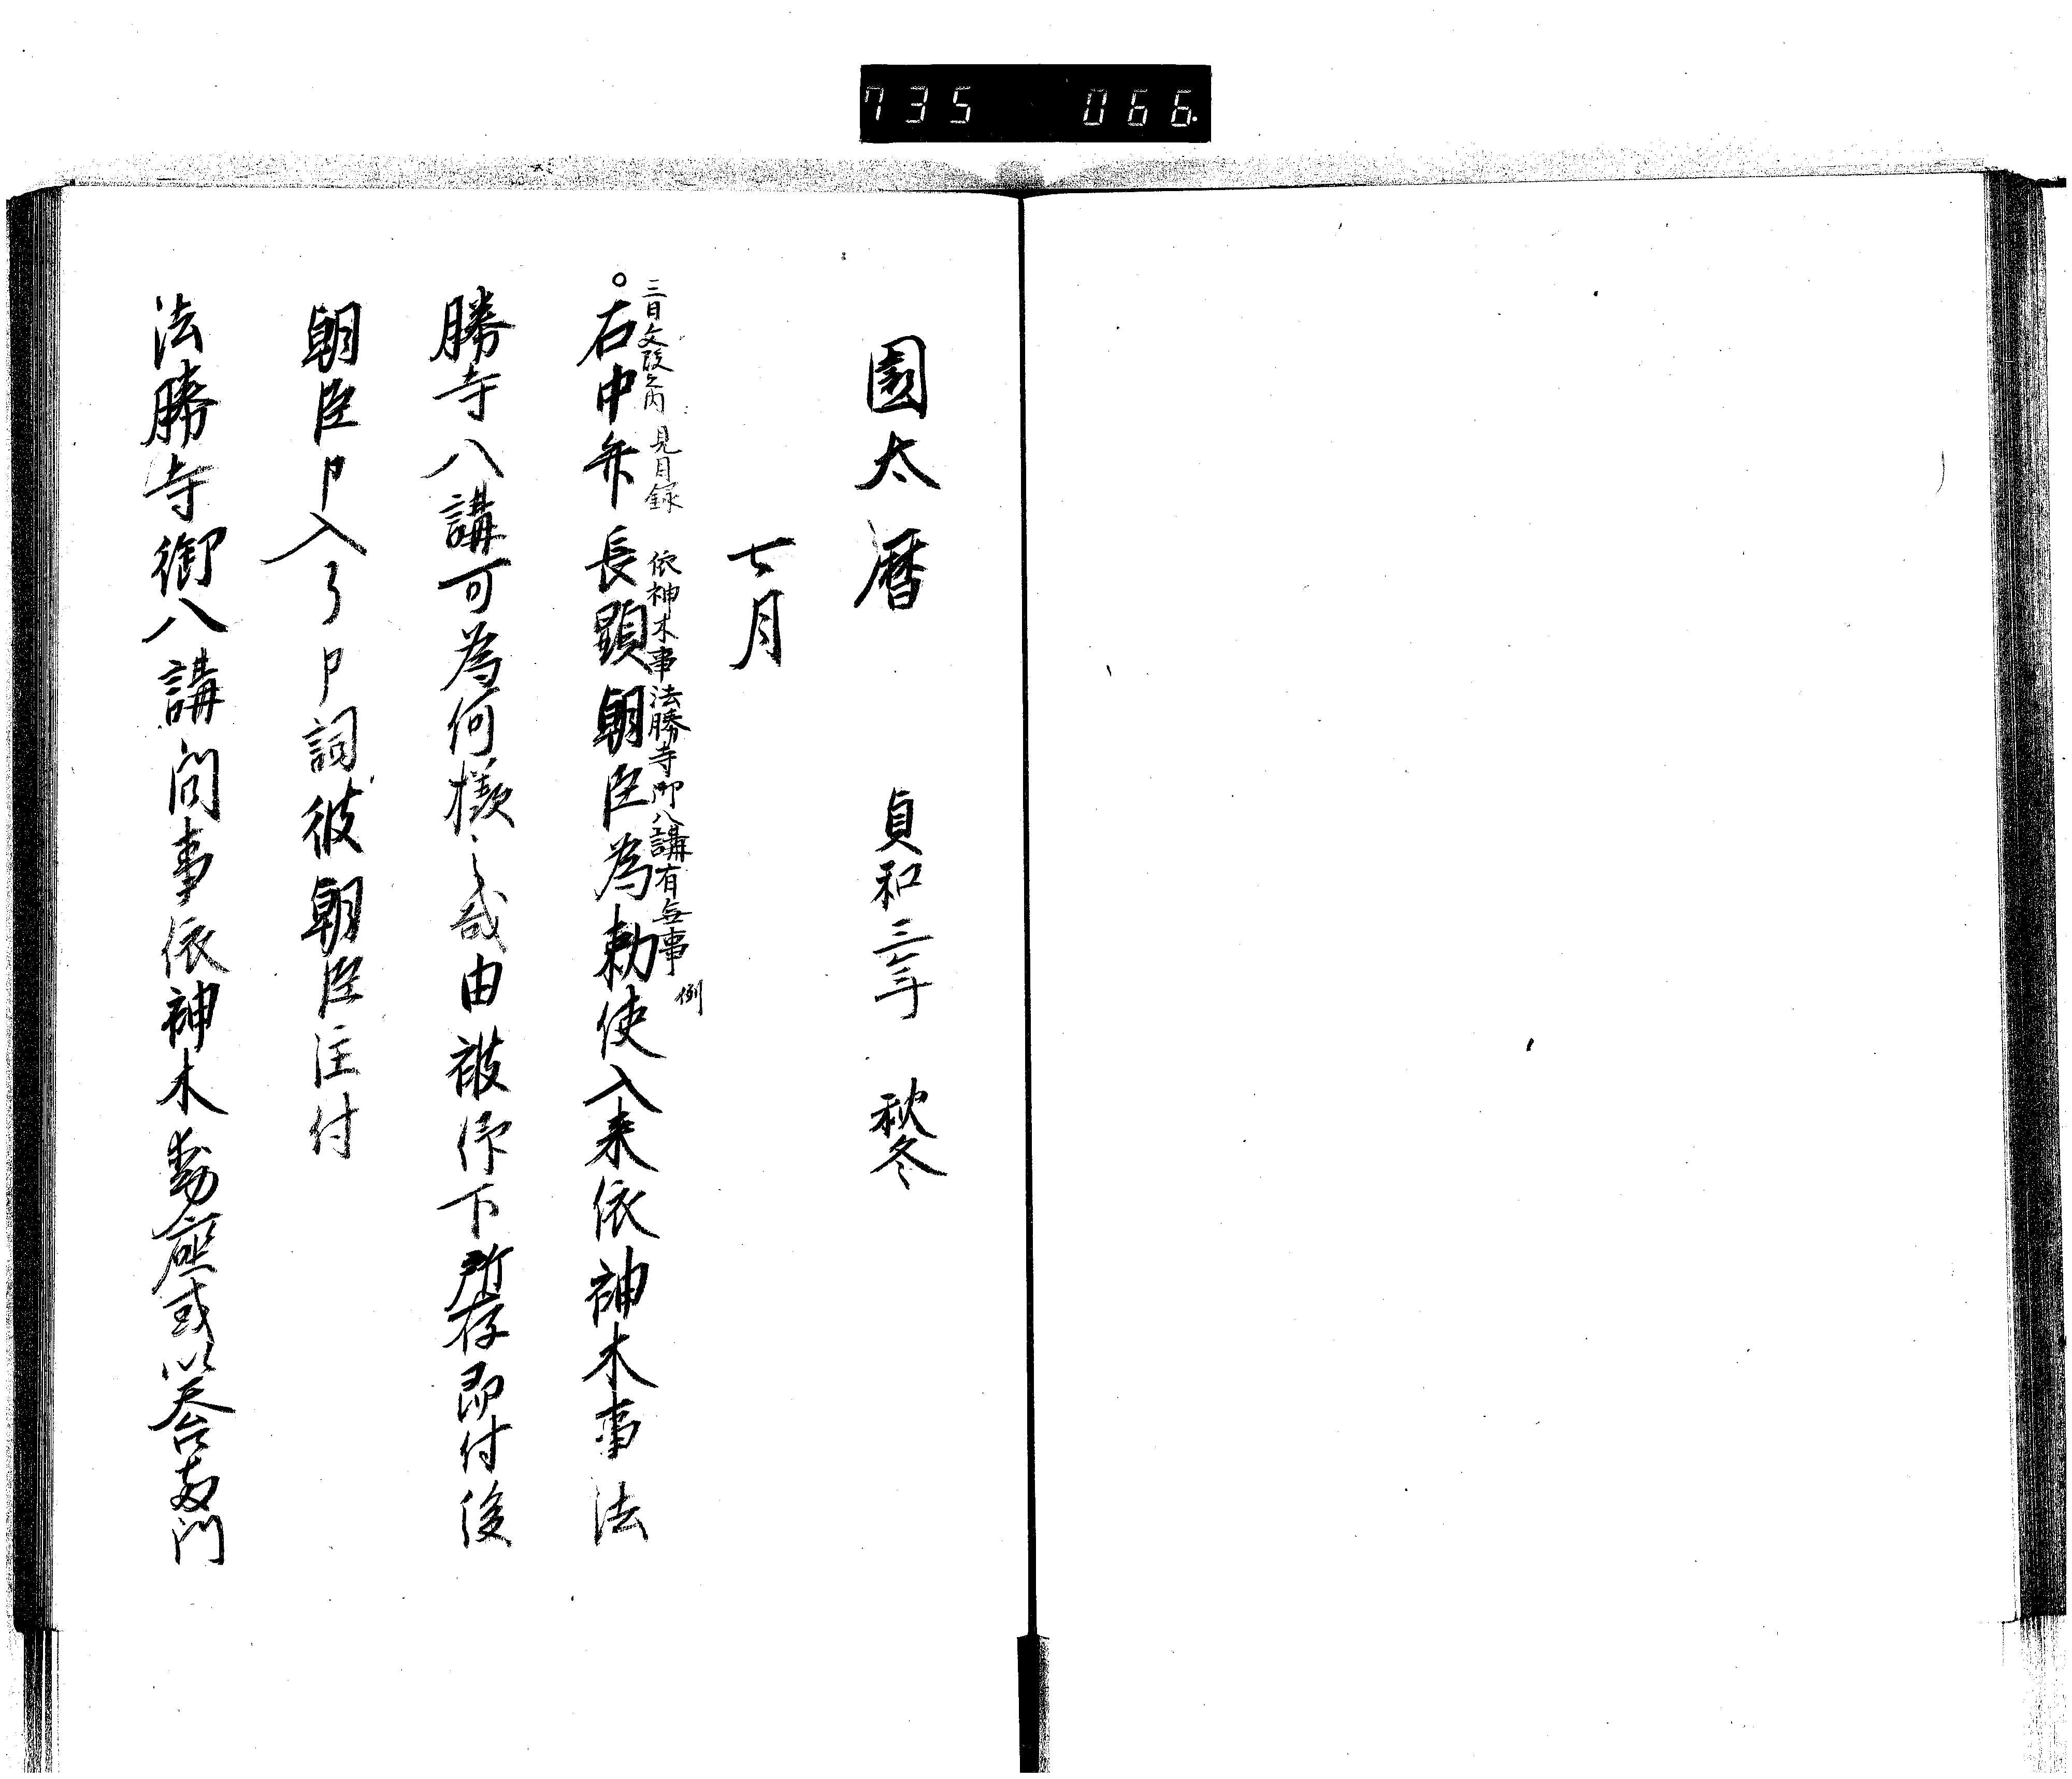 735 066
園太暦 貞和三年 秋冬
七月
三日文段之内 見目録 依神木事法勝寺御八講有無事 例
○右中弁長顕朝臣為勅使入来依神木事法
勝寺八講可為何様哉由被仰下所存即付後
朝臣申入了申詞彼朝臣注付
法勝寺御八講間事依神木動座或以天台両門